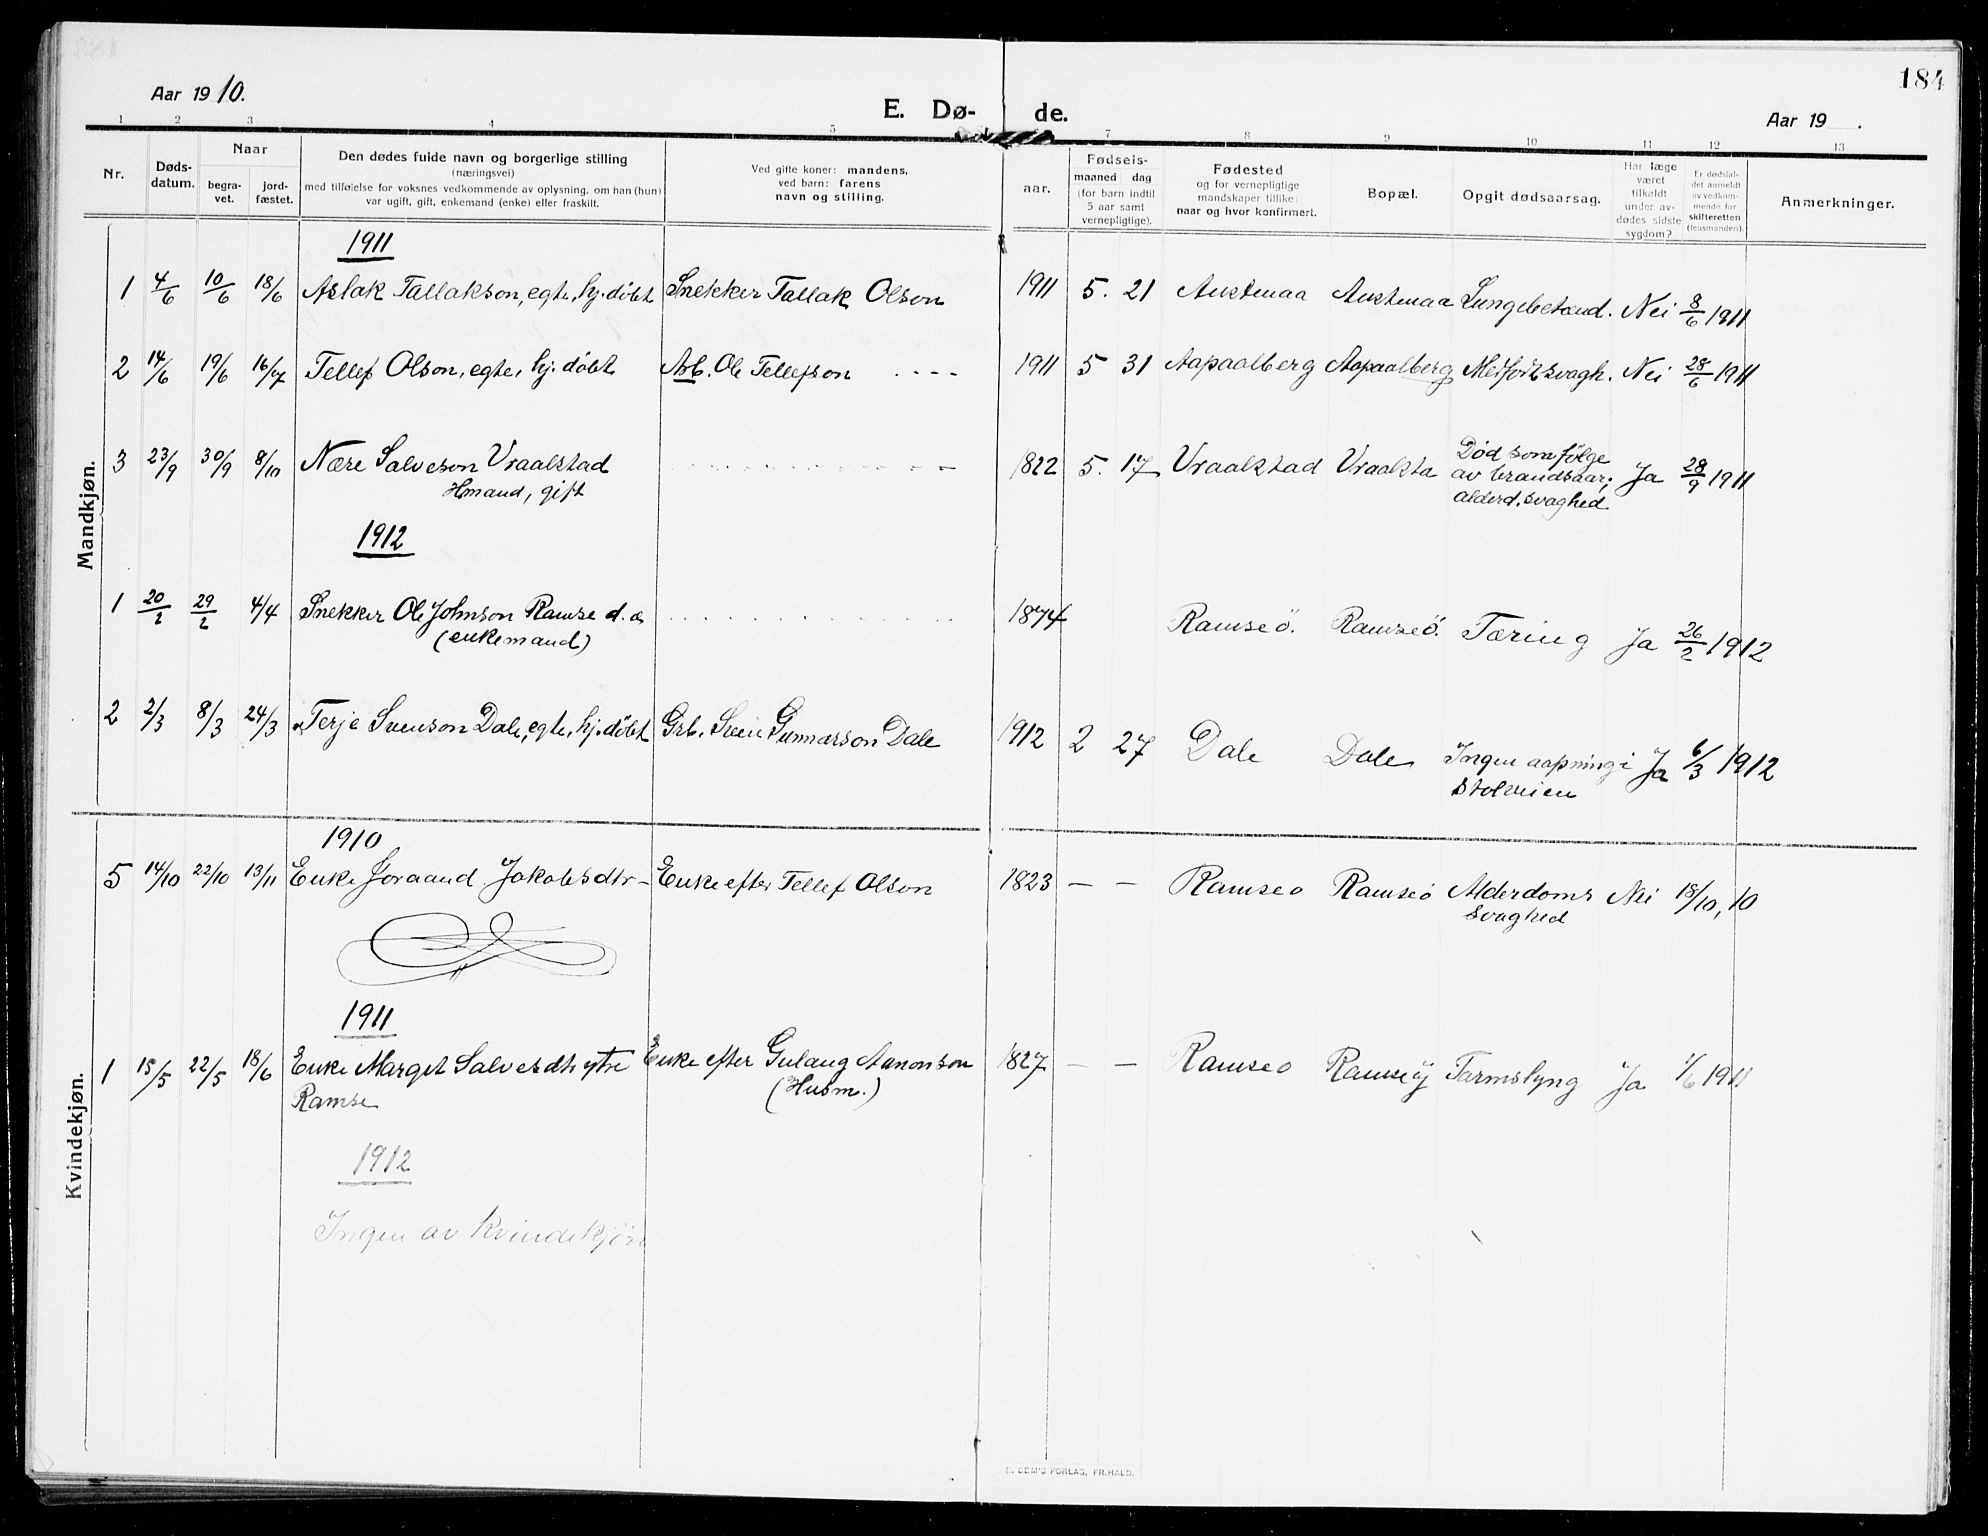 184
Aar 1910.
E. Dø- de.
Aar 19 .
1 2 3 4 5 7 8 9 10 11 12 13
Nr.
Døds-
datum.
Naar
begra-
vet.
jord-
fæstet.
Den dødes fulde navn og borgerlige stilling
(næringsvei)
med tilføielse for voksnes vedkommende av oplysning, om han (hun)
var ugift, gift, enkemand (enke) eller fraskilt.
Ved gifte koner: mandens,
ved barn: farens
navn og stilling.
aar.
Fødsels-
maaned dag
(for barn indtil
5 aar samt
vernepligtige).
Fødested
og for vernepligtige
mandskaper tillike:
naar og hvor konfirmert.
Bopæl.
Opgit dødsaarsag.
Har læge
været
tilkaldt
under av-
dødes sidste
sygdom?
Er dødsfal-
det anmeldt
av vedkom-
mende for
skifteretten
(lensmanden).
Anmerkninger.
Mandkjøn.
1911
1 4/6 10/6 18/6 Aslak Tallakson, egte, hj. døbt Snekker Tallak Olson 1911 5. 21 Austenaa Austenaa Lungebetænd. Nei 8/6 1911
2 14/6 19/6 16/7 Tellef Olson, egte, hj. døbt Arb. Ole Tellefson - - - - 1911 5 31 Aapaalberg Aapaalberg Medfödt svagh. Nei 28/6 1911
3 23/9 30/9 8/10 Nære Salveson Vraalstad 1822 5. 17 Vraalstad Vraalsta Død som følge
Hmand, gift
av brandsaar; Ja 28/9 1911
alderd. svaghed
1912
1 20/2 29/2 4/4 Snekker Ole Johnson Ramse d. æ 1874 Ramseö. Ramseö. Tæring Ja 26/2 1912
(enkemand)
2 2/3 8/3 24/3 Terje Svenson Dale, egte, hj. døbt Grb. Sven Gunnarson Dale 1912 2 27 Dale Dale Ingen aapning i Ja 6/3 1912
stolveien
Kvindekjøn.
1910
5 14/10 22/10 13/11 Enke Joraand Jakobsdtr - Enke efter Tellef Olson 1823 - - Ramseo Ramseö Alderdoms Nei 18/10, 10
svaghed
1911
1 15/5 22/5 18/6 Enke Marget Salvesdtr ytre Enke efter Gulaug Aanonson 1827 - - Ramseo Ramseö Tarmslyng Ja 1/6 1911
Ramse (Husm.)
1912
Ingen av Kvindekjön
E. SEM'S FORLAG, FR.HALD.